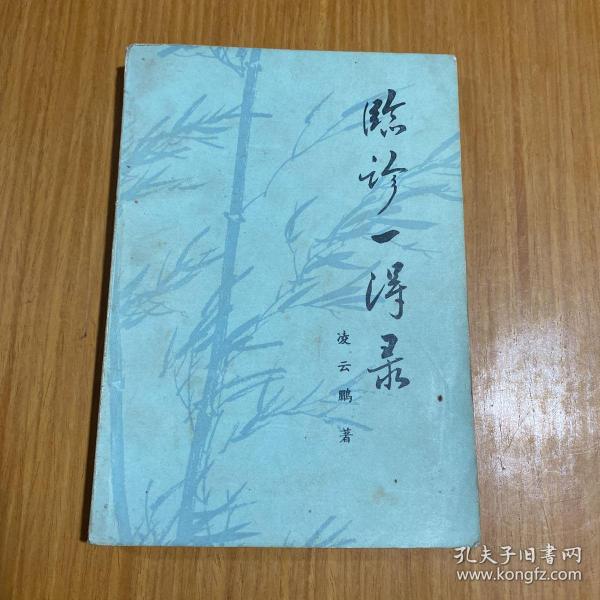 臨诊一得录
凌云鹏 著
孔夫子旧書网
www.kongfz.com